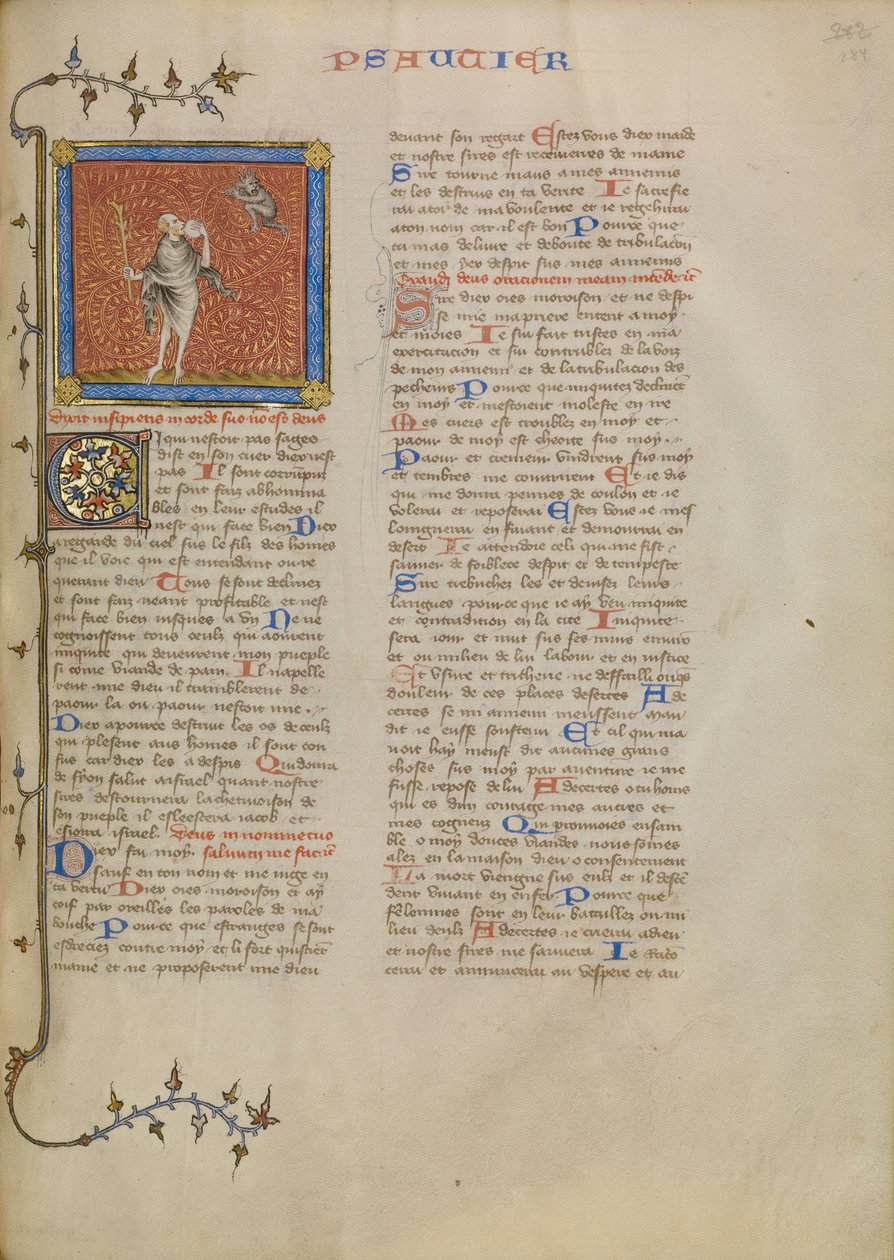 PSAUTIER
282
284
Dixit insipiens in corde suo no est deus
Cil qui nestoit pas sages
dist en son cuer diex nest
pas Il sont corrumpuz
et sont faiz abhomina
bles en leur estudes il
nest qui face bien Diex
a regarde du ciel sus le filz des homes
que il voie qui est entendant ou re
querant dieu Touz se sont declinez
et sont faiz neant profitable et nest
qui face bien iusques a vn Ne ne
cognoissent touz ceulz qui aouvrent
iniquite qui deveurent mon pueple
si come viande de pain Il napelle
rent mie dieu il tramblerent de
paour la ou paour nestoit mie
Diex apource destruit les os de ceulz
qui plesent aus homes il sont con
fus car diex les a despis Qui donra
de syon salut a israel quant nostre
sires destournera la chetivoison de
son pueple il esleescera iacob et
esioira israel. Deus in nomine tuo
Diex fai moy salvum me fac et
sauf en ton nom et me iuge en
ta vertu Diex oies moroison et ay
coif par oreilles les paroles de ma
bouche Pource que estranges se sont
esdreciez contre moy et li fort quistrent
mame et ne proposerent mie dieu
devant son regart Estez vous diex maide
et nostre sires est receverres de mame
Sire tourne maus a mes annemis
et les destruis en ta verite Ie sacrefie
rai a toi de ma voulente et ie regehirai
a ton nom car il est bon Pource que
tu mas delivre et deboute de tribulacon
et mes yex despit sus mes annemis
Exaudi deus orationem meam
Sire diex oies moroison et ne despi
se mie ma priere entent a moy
et moies Ie sui fait tristes en ma
exercitacion et sui contriblez de la voiz
de mon annemi et de la tribulacion des
pecheurs Pource que iniquitez declinerent
en moy et mestoient moleste en ire
Mes cuers est troublez en moy et
paour de mort est cheoite sus moy
Paour et cremeur vindrent sus moy
et tenebres me couvrirent Et ie dis
qui me donra pennes de coulon et ie
volerai et reposerai Estez vous ie mes
loingnerai en fuiant et demourrai en
desert Ie attendoie celi qui me fist
sauver de foiblece despit et de tempeste
Sire trebuchez les et devisez leurs
langues pour ce que ie ay veu iniquite
et contradicion en la cite Iniquite
sera iour et nuit sus ses murs environ
et ou milieu de lui labour et en iustice
Et vsure et tricherie ne deffailli onques
douleur de ces places desertes Ade
certes se mi annemi meussent mau
dit ie eusse soustenu Et cil qui ma
voit hay meust dit aucunes grans
choses sus moy par aventure ie me
fusse repose de lui Adecertes o tu homs
qui es dun corage mes autres et
mes cogneuz Qui prennoies ensam
ble o moy douces viandes nous somes
alez en la maison dieu o consentement
La mort viengne sus eulz et il descen
dent vivant en enfer Pource que
felonnies sont en leur batailles ou mi
lieu deulz Adecertes ie crierai a dieu
et nostre sires me sauvera Ie raco
terai et annuncerai au vespere et au